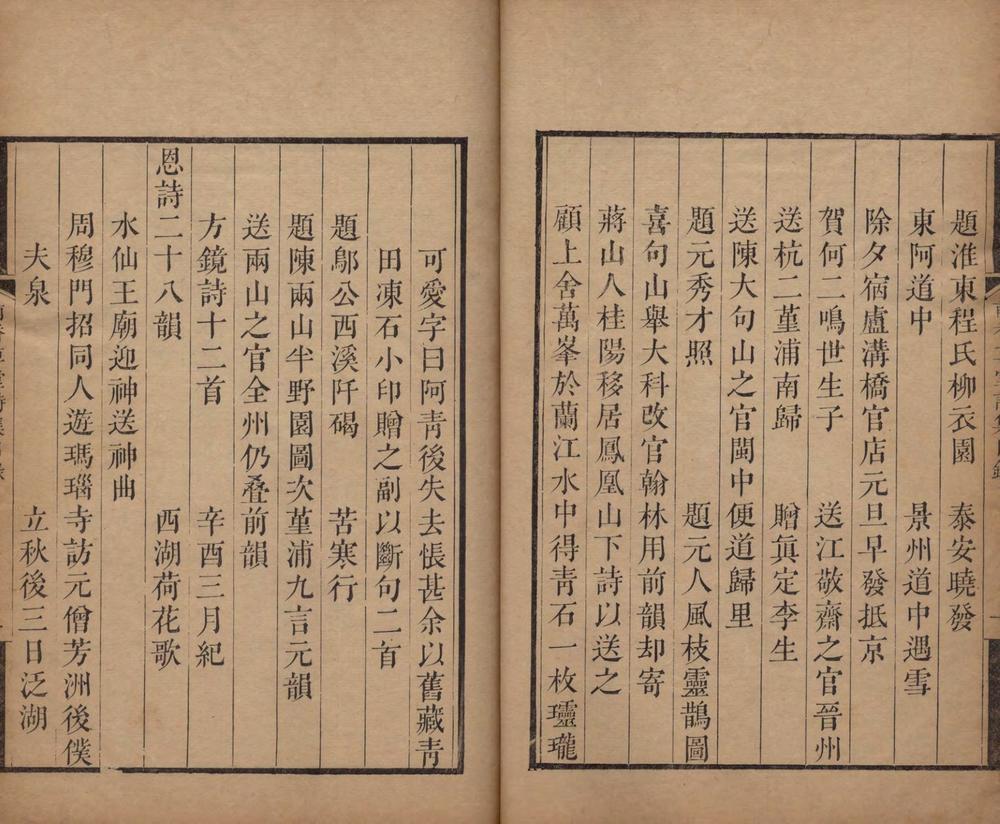 題淮東程氏柳衣園　泰安曉發
東阿道中　景州道中遇雪
除夕宿盧溝橋官店元旦早發抵京
賀何二鳴世生子　送江敬齋之官晉州
送杭二堇浦南歸　贈眞定李生
送陳大句山之官閩中便道歸里
題元秀才照　題元人風枝靈鵲圖
喜句山舉大科改官翰林用前韻却寄
蔣山人桂陽移居鳳凰山下詩以送之
顧上舍萬峯於蘭江水中得靑石一枚瓏瓏
可愛字曰阿靑後失去悵甚余以舊藏靑
田凍石小印贈之副以斷句二首
題鄔公西溪阡碣　苦寒行
題陳兩山半野園圖次堇浦九言元韻
送兩山之官全州仍叠前韻
方鏡詩十二首　辛酉三月紀
恩詩二十八韻　西湖荷花歌
水仙王廟迎神送神曲
周穆門招同人遊瑪瑙寺訪元僧芳洲後僕
夫泉　立秋後三日泛湖